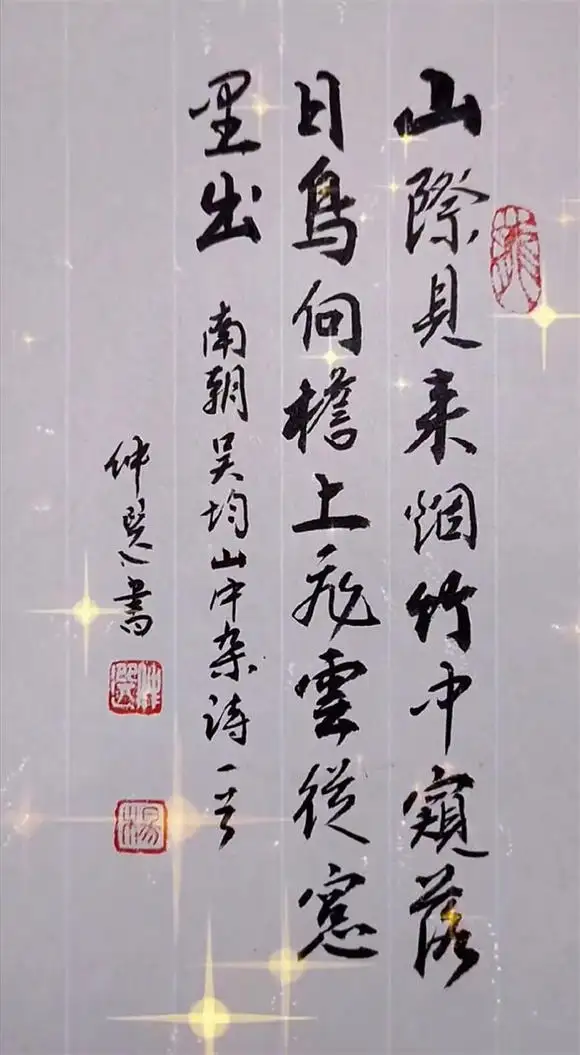 山際見来烟竹中窺落
日鳥向檐上飛雲從窓
里出 南朝吴均山中杂诗一首
仲選書
仲選
楊